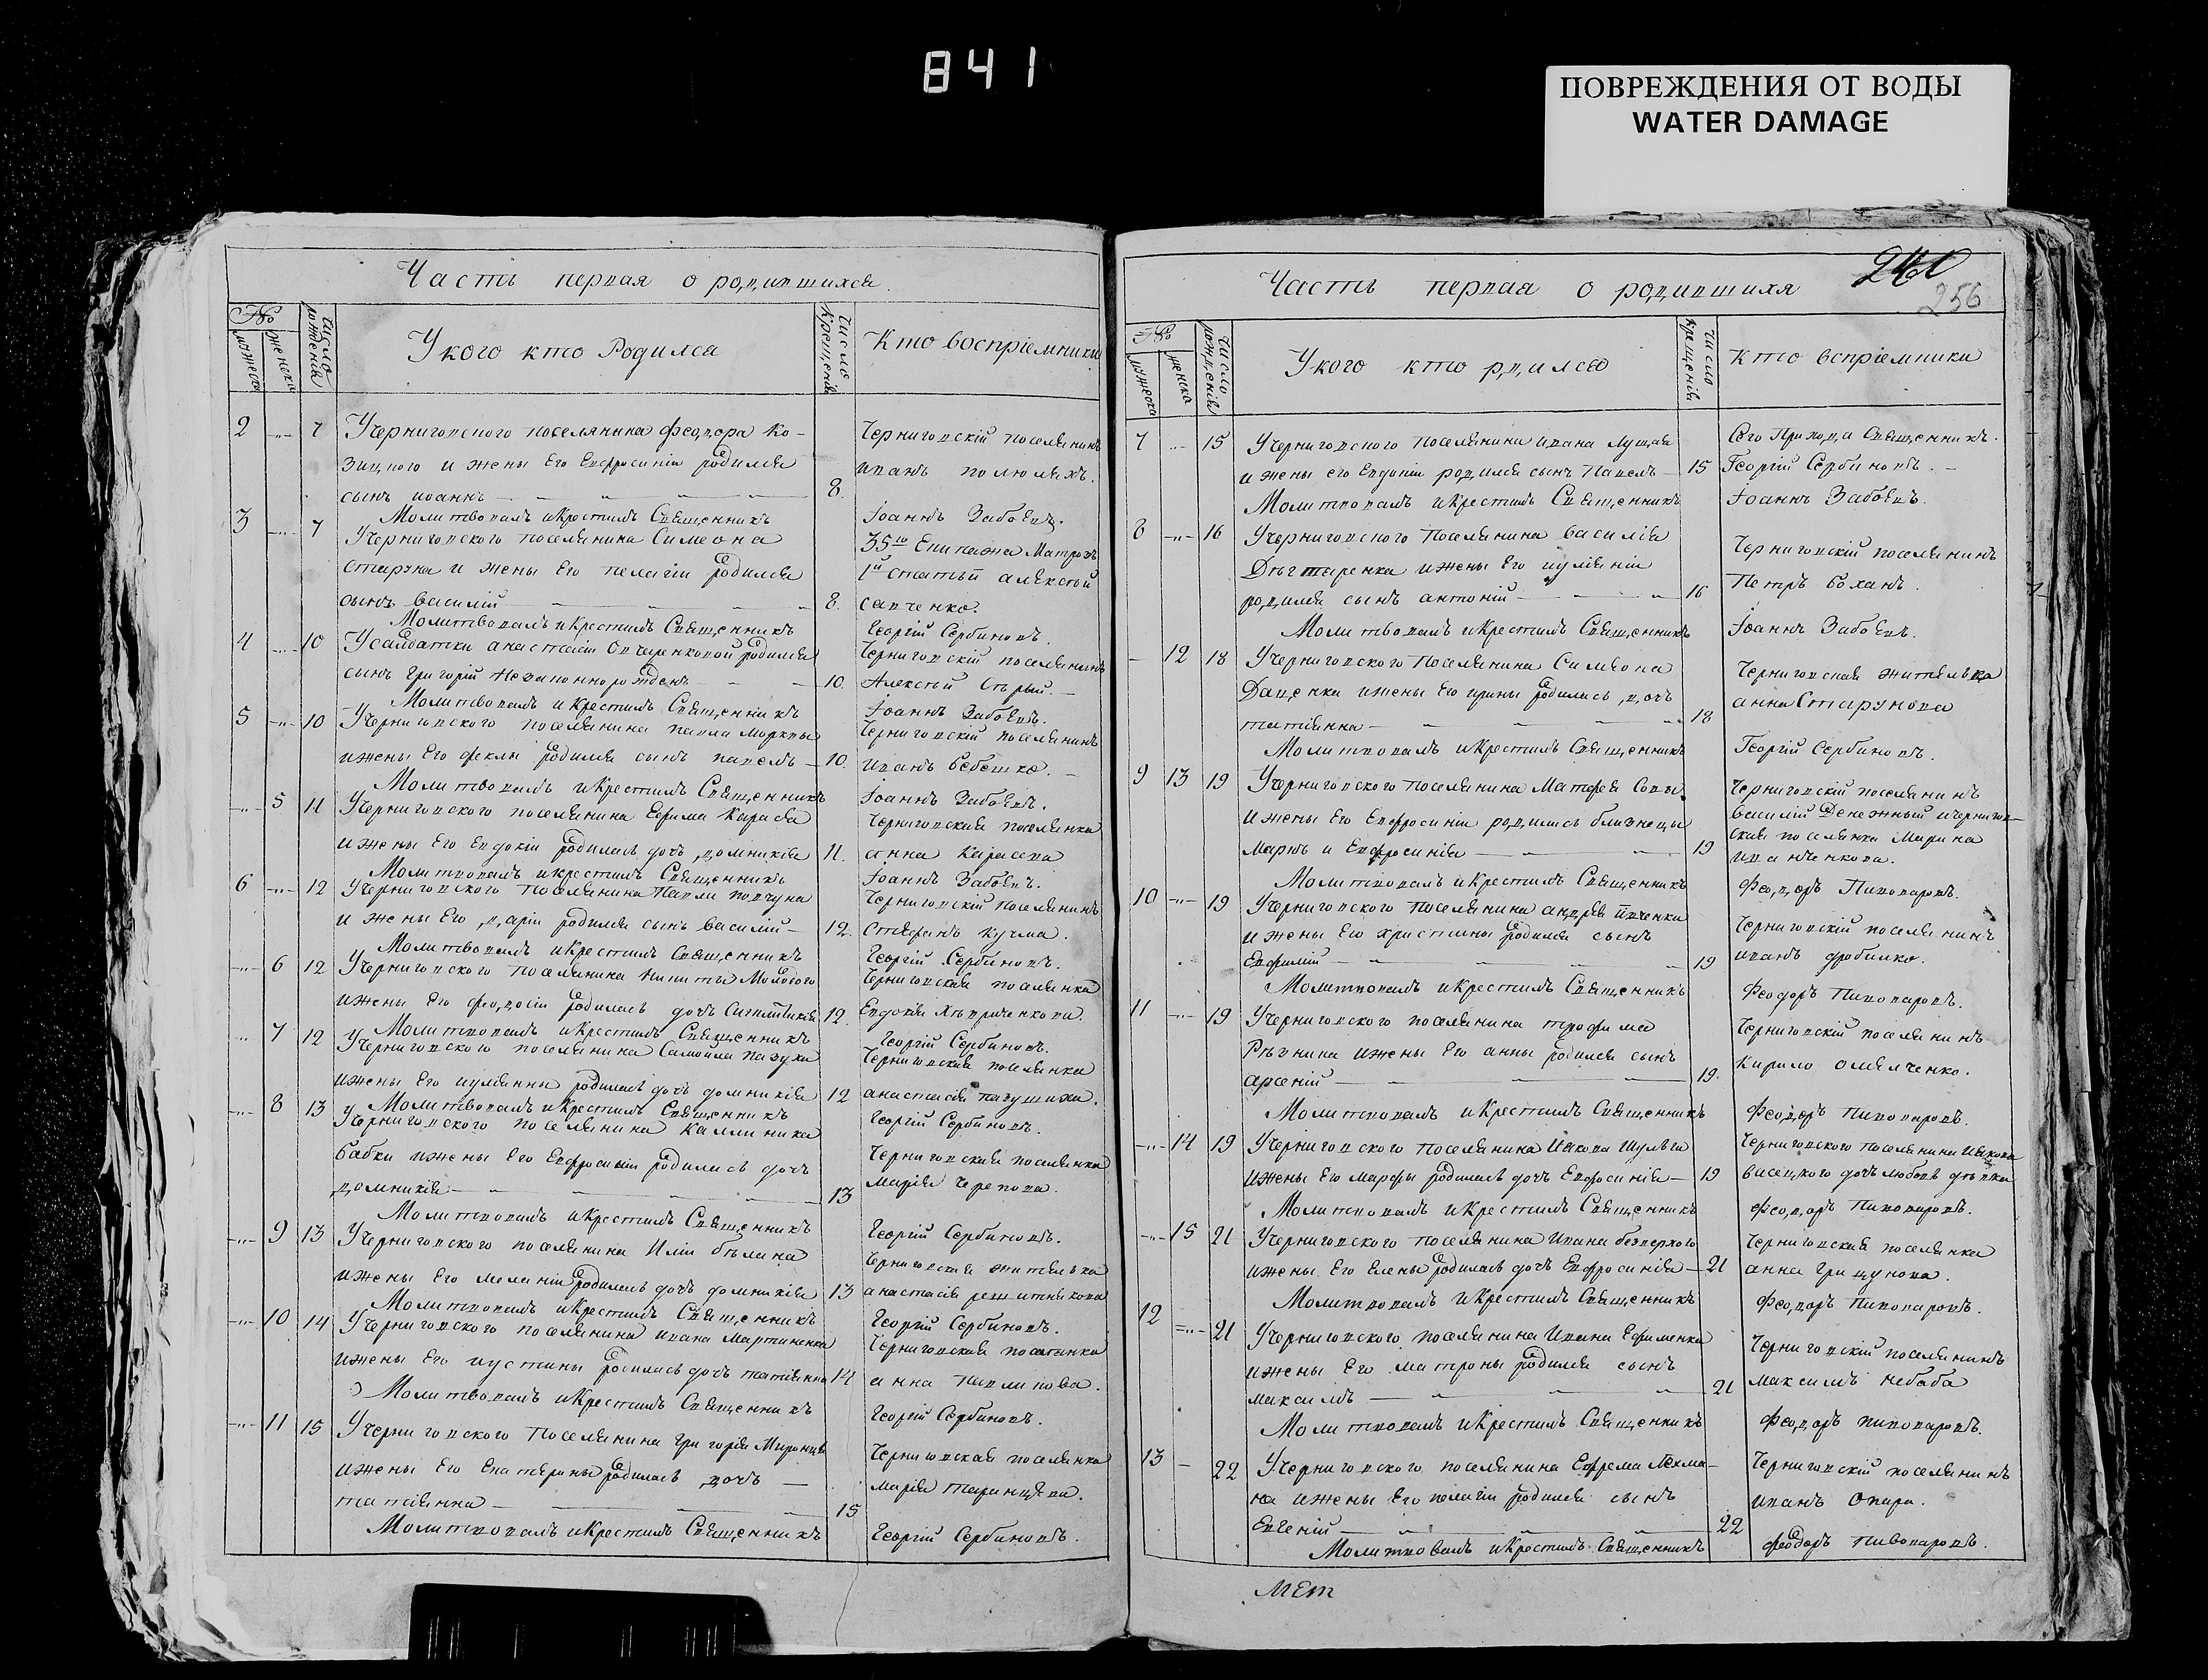 841
ПОВРЕЖДЕНИЯ ОТ ВОДЫ
WATER DAMAGE
Часть первая о родившихся.
№
мужеска
женска
число рожденія
У кого кто Родился
число крещенія
Кто воспріемники
2 -„- 7 У черниговского поселянина Феодора Ко-
зицкого и жены Его Евфросиніи родился
сынъ иоаннъ 8.
Черниговскій поселянинъ
иванъ полюляхъ.
Молитвовалъ и Крестилъ Священникъ Іоаннъ Забоевъ.
3 -„- 7 У черниговского поселянина Симеона
старуха и жены Его пелагіи родился
сынъ василій 8.
35го Екипажа Матрозъ
1й статьи алексей
савченко.
Молитвовалъ и Крестилъ Священникъ Георгій Сербиновъ.
4 -„- 10 У салдатки анастасіи Овчаренковой родился
сынъ григорій Незаконнорожденъ 10.
Черниговскій поселянинъ
Алексей Сърый.
Молитвовалъ и Крестилъ Священникъ Іоаннъ Забоевъ.
5 -„- 10 У черниговского поселянина павла Морквы
и жены Его феклы родился сынъ павелъ 10.
Черниговскій поселянинъ
иванъ бебешко.
Молитвовалъ и Крестилъ Священникъ Іоаннъ Забоевъ.
-„- 5 11 У черниговского поселянина Ефима Карасва
и жены Его Евдокіи родилась дочь домникія 11.
Черниговская поселянка
анна Карасева
Молитвовалъ и крестилъ Священникъ Іоаннъ Забоевъ.
6 -„- 12 У черниговского поселянина Павла повчуна
и жены Его дарiи родился сынъ василій 12.
Черниговскій Поселянинъ
Стефанъ кучма.
Молитвовалъ и Крестилъ Священникъ Георгій Сербиновъ.
-„- 6 12 У черниговского поселянина никиты Молодого
и жены Его феодосіи родилась дочь 12.
Черниговская поселянка
Евдокія
Молитвовалъ и Крестилъ Священникъ Георгій Сербиновъ.
„ 7 12 У черниговского поселянина Самойла пазуха
и жены Его иуліянны родилась дочь домникія 12
Черниговская поселянка
анастасія пазушиха.
Молитвовалъ и Крестилъ Священникъ Георгій Сербиновъ.
-„- 8 13 У черниговского поселянина каллиника
бабки и жены Его Евфросиніи родилась дочь
домникія 13
Черниговская поселянка
марія Черепова.
Молитвовалъ и Крестилъ Священникъ Георгій Сербиновъ.
-„- 9 13 У черниговского поселянина Иліи бълана
и жены Его меланіи родилась дочь домникія 13
Черниговская жителька
анастасія решитнякова
Молитвовалъ и Крестилъ Священникъ Георгій Сербиновъ.
-„- 10 14 У черниговского поселянина ивана Мартиненка
и жены Его иустины родилась дочь татіянна 14
Черниговская поселянка
анна павлинова.
Молитвовалъ и Крестилъ Священникъ Георгій Сербиновъ.
-„- 11 15 У черниговского Поселянина григорія
и жены Его Екатерины родилась дочь
татіянна 15
Черниговская поселянка
марія таранцева.
Молитвовалъ и Крестилъ Священникъ Георгій Сербиновъ.
Часть первая о родившихя
256
№
мужеска
женска
число рожденія
У кого кто рдился
число крещенія
Кто вспріемники
7 -„- 15 У черниговского поселянина ивана луцая
и жены его Евдокіи родился сынъ Павелъ 15
Сего Прихода Священникъ.
Георгій Сербиновъ.
Молитвовалъ и Крестилъ Священникъ Іоаннъ Забоевъ.
8 -„- 16 У черниговского Поселянина василія
Дъгтяренка и жены Его иуліяніи
родился сынъ антоній 16
Черниговскій поселянинъ
Петръ боханъ.
Молитвовалъ и Крестилъ Священникъ Іоаннъ Забоевъ.
— 12 18 У черниговского Поселянина Симеона
Даценка и жены Его ирины родилась дочь
татіянна 18
Черниговская жителька
анна Старухова
Молитвовалъ и Крестилъ Священникъ Георгій Сербиновъ.
9 13 19 У черниговского поселянина Матфея Совы
и жены Его Евфросиніи родились близнецы
Маркъ и Евфросинія 19
Черниговскій поселянинъ
василій Денежный и чернигов-
ская поселянка Марина
иванченкова.
Молитвовалъ и Крестилъ Священникъ Феодоръ Пивоваровъ.
10 -„- 19 У черниговского поселянина андрея
и жены Его христины родился сынъ
Евфимій 19
Черниговскій поселянинъ
иванъ дробилко.
Молитвовалъ и Крестилъ Священникъ Феодоръ Пивоваровъ.
11 -„- 19 У черниговского поселянина трофима
Ръзника и жены Его анны родился сынъ
арсеній 19.
Черниговскій поселянинъ
Кирило омелченко.
Молитвовалъ и Крестилъ Священникъ Феодоръ Пивоваровъ.
-„- 14 19 У черниговского поселянина Иякова Шульги
и жены Его марфы родилась дочь Евфросинія 19
Черниговского поселянина Иякова
висецкого дочь любовь дъвка
Молитвовалъ и Крестилъ Священникъ Феодоръ Пивоваровъ.
-„- 15 21 У черниговского поселянина Ивана безверхого
и жены Его Елены родилась дочь Евфросинія 21
Черниговская поселянка
анна грицунова.
Молитвовалъ и Крестилъ Священникъ Феодоръ Пивоваровъ.
12 -„- 21 У черниговского поселянина Ивана Ефименка
и жены Его матроны родился сынъ
максимъ 21
Черниговскій поселянинъ
максимъ небаба
Молитвовалъ и Крестилъ Священникъ Феодоръ пивоваровъ.
13 — 22 У черниговского поселянина Ефрема Лехма-
на и жены Его пелагіи родился сынъ
Евгеній 22
Черниговскій поселянинъ
иванъ Опара.
Молитвовалъ и Крестилъ Священникъ Феодоръ пивоваровъ.
МЕт